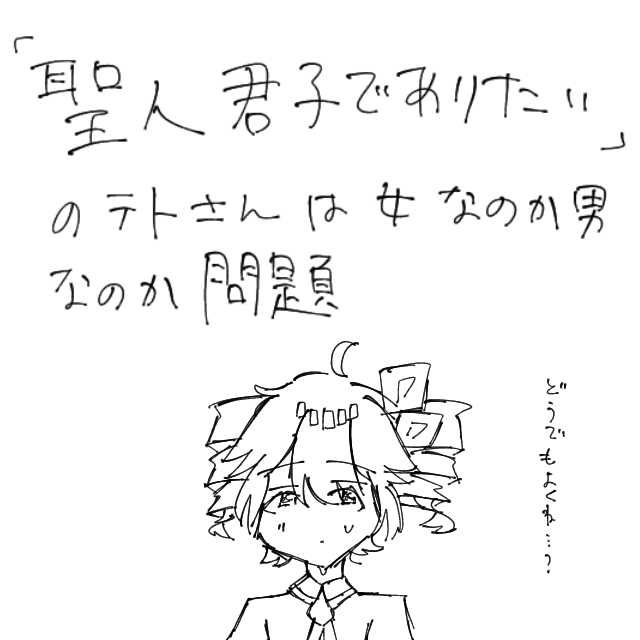 「聖人君子でありたい」
のテトさんは女なのか男
なのか問題
どうでもよくね…?